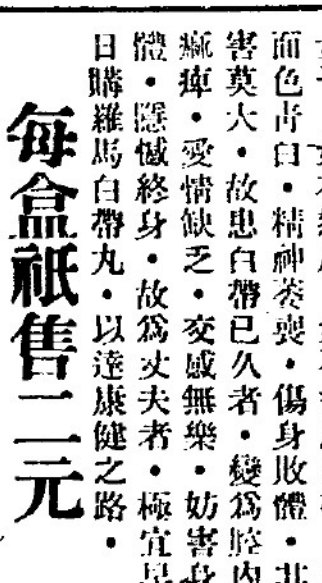 面色青白・精神萎喪・傷身敗體・其
害莫大・故患白帶已久者・變爲腔內
痲痺・愛情缺乏・交感無樂・妨害身
體・隱憾終身・故爲丈夫者・極宜早
日購羅馬白帶丸・以達康健之路・
每盒祇售二元